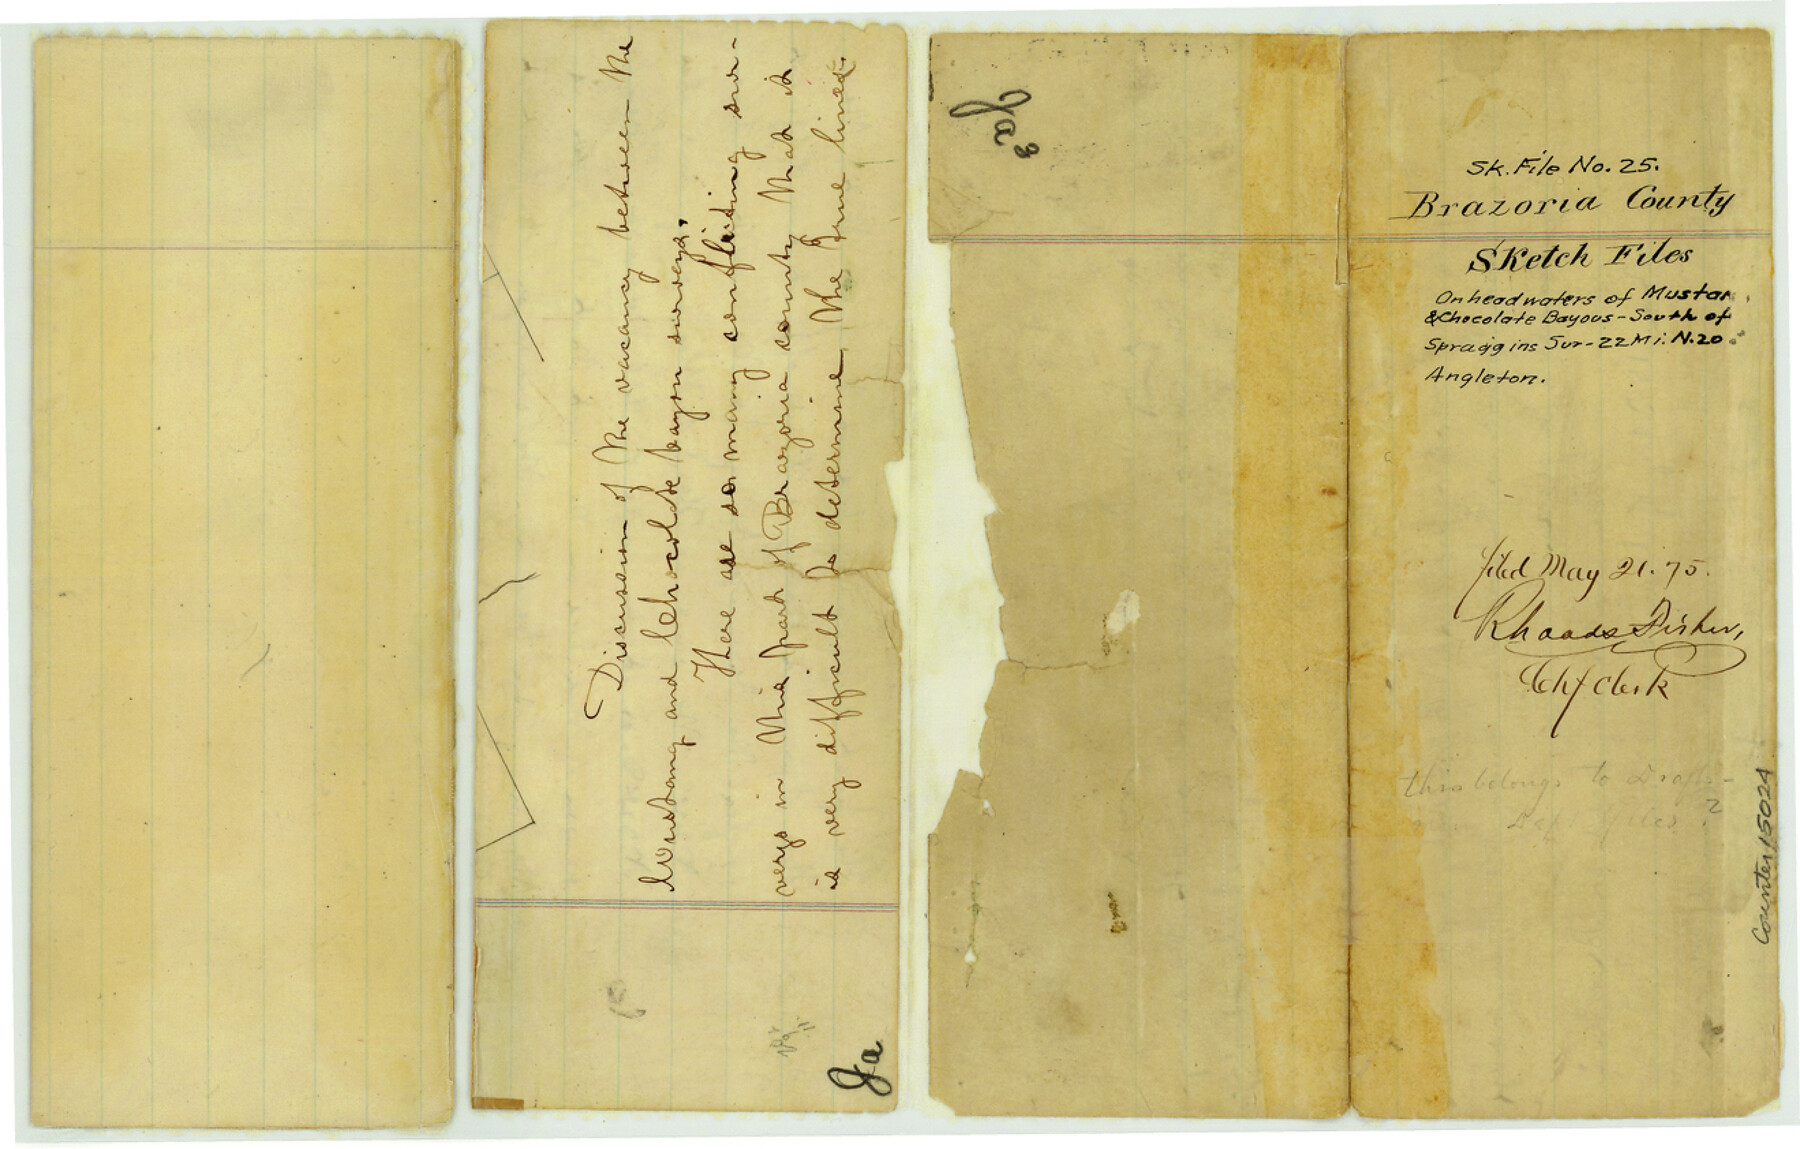 Discussion of the vacancy between the
Mustang and Chocolate bayou surveys;
There are so many conflicting sur-
veys in this part of Brazoria county that it
is very difficult to determine the true lines.
Ja
Ja3
Sk. File No. 25.
Brazoria County
Sketch Files
On headwaters of Mustan
& Chocolate Bayous - South of
Spraggins Sur - 22 Mi. N. 20
Angleton.
filed May 21. 75.
Rhoads Fisher,
Chf Clerk
this belongs to Drafts-
Dept files ?
Counter 15024